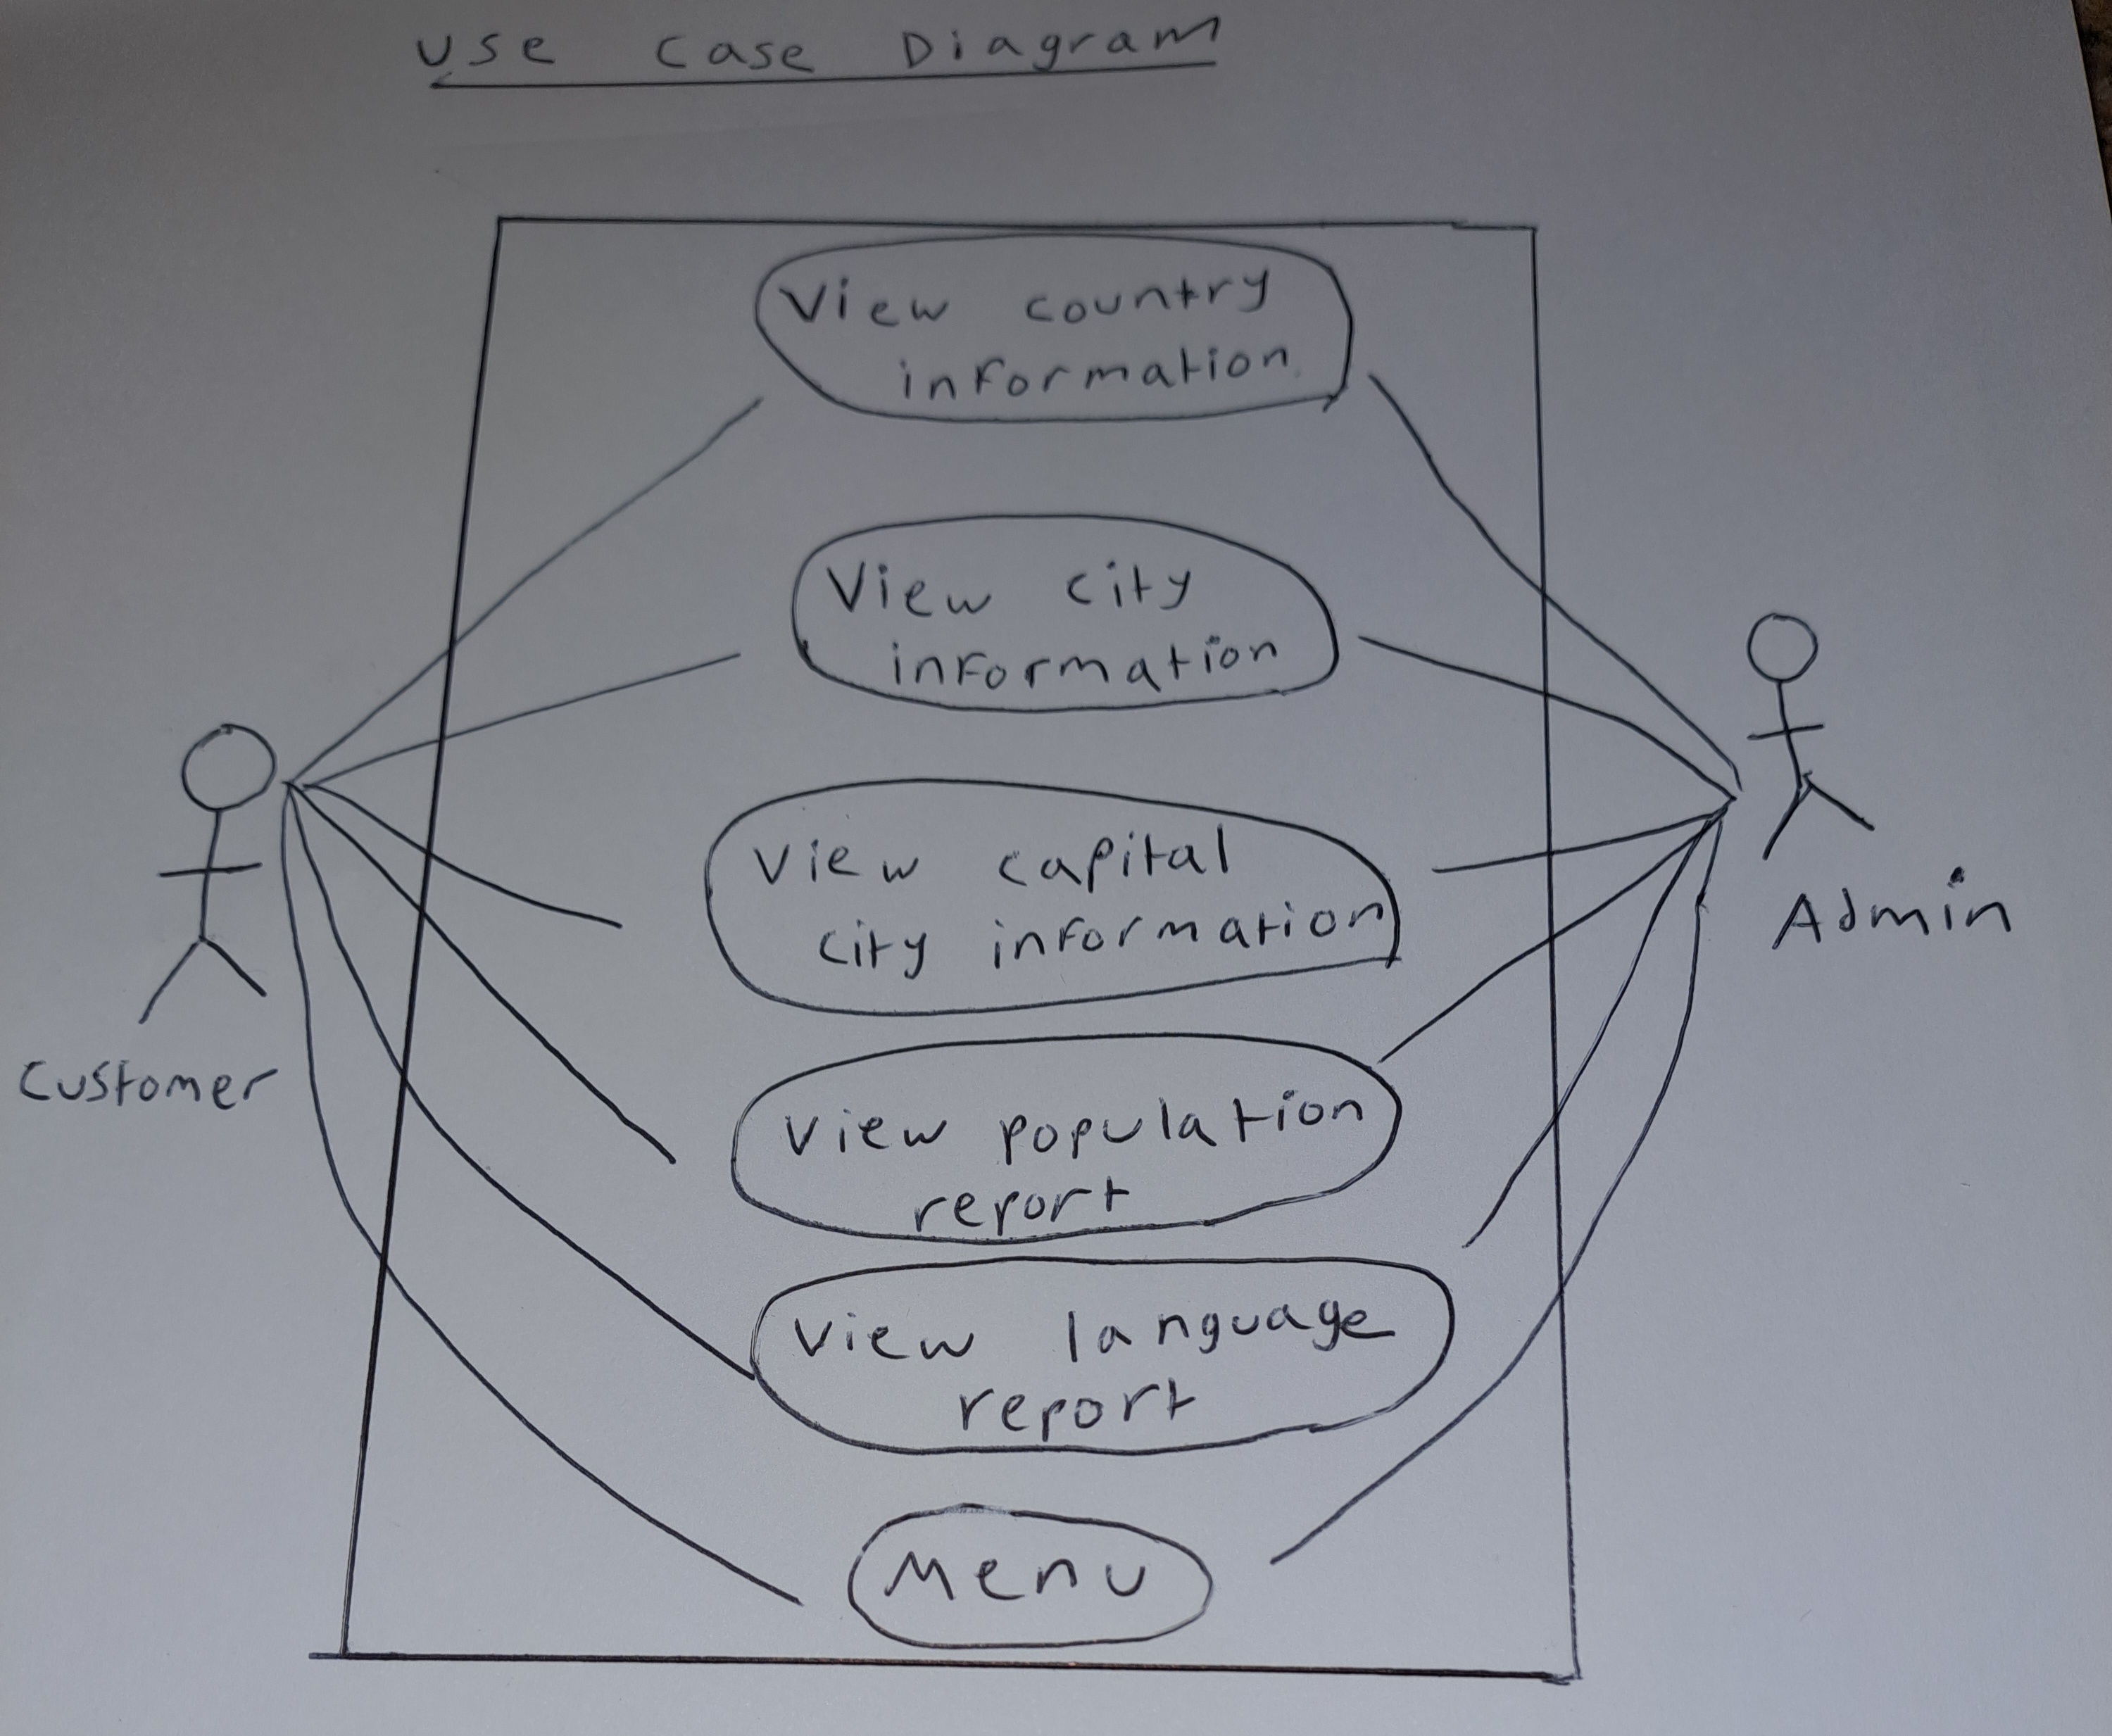 Use Case Diagram
View country
information
View city
information
View capital
city information
View population
report
View language
report
Menu
Customer
Admin